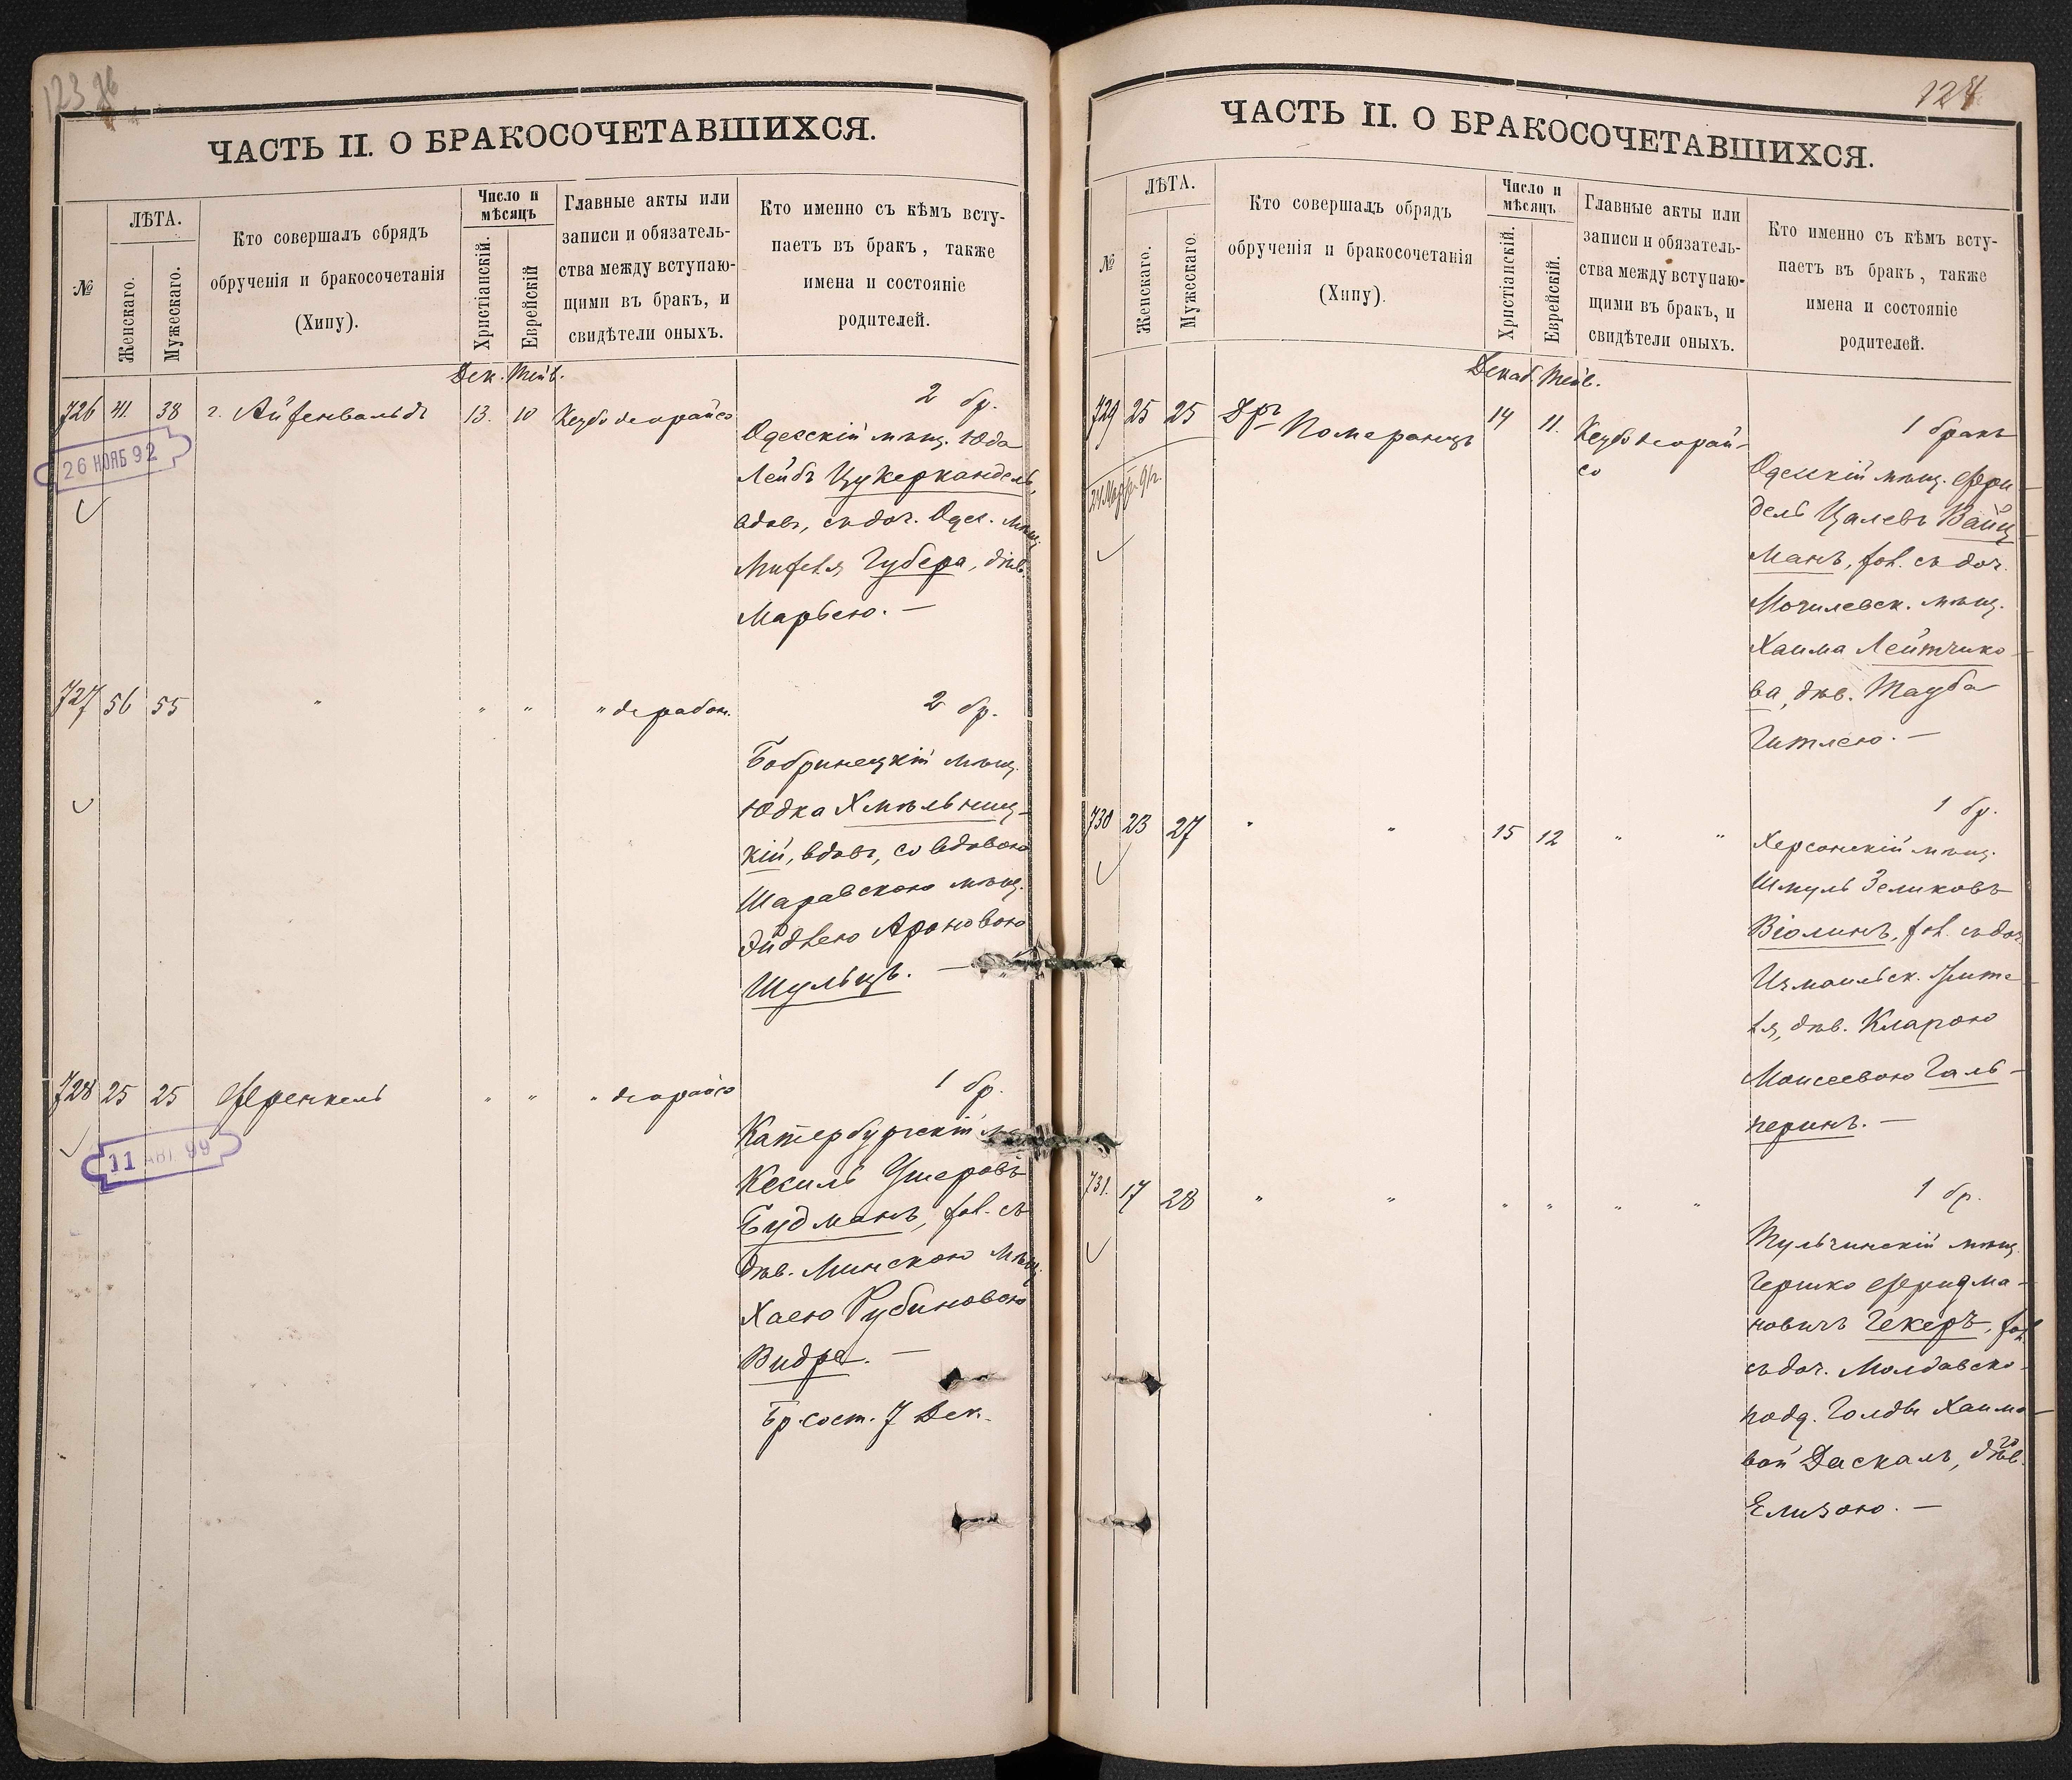 ЧАСТЬ II. О БРАКОСОЧЕТАВШИХСЯ.
№
ЛѢТА.
Женскаго.
Мужескаго.
Кто совершалъ обрядъ
обрученія и бракосочетанія
(Хипу).
Число и
мѣсяцъ
Христіанскій.
Еврейскій
Главные акты или
записи и обязатель-
ства между вступаю-
щими въ бракъ, и
свидѣтели оныхъ.
Кто именно съ кѣмъ всту-
паетъ въ бракъ, также
имена и состояніе
родителей.
Дек. Тейв.
726 41. 38 г. Айзенвальдъ 13. 10
26 НОЯБ 92
2 бр.
Одесскій мѣщ. Юда
Лейбъ Цукеркандель,
вдов., съ доч. Одес. мѣщ.
Губера, дѣв.
Марьею. —
727 56 55 " " "
2 бр.
Бобринецкій мѣщ.
Юдка Хмѣльниц-
кій, вдов., со вдовою
Шаравскою мѣщ.
Эйдлею Ароновою
Шульцъ. —
728 25 25 Френкель " "
11 АВГ 99
1 бр.
Катербургскій
Кесиль Ушеровъ
Будманъ, хол. съ
дѣв. Минскою мѣщ.
Хаею Рубиновою
Видра. —
Бр. сост. 7 Дек.
124
ЧАСТЬ II. О БРАКОСОЧЕТАВШИХСЯ.
№
ЛѢТА.
Женскаго.
Мужескаго.
Кто совершалъ обрядъ
обрученія и бракосочетанія
(Хипу).
Число и
мѣсяцъ
Христіанскій.
Еврейскій.
Главные акты или
записи и обязатель-
ства между вступаю-
щими въ бракъ, и
свидѣтели оныхъ.
Кто именно съ кѣмъ всту-
паетъ въ бракъ, также
имена и состояніе
родителей.
Декаб. Тейв.
729 25 25 Дръ Померанцъ 14 11.
1 бракъ
Одесскій мѣщ. Фри-
дель Цалевъ Вайц-
манъ, хол. съ доч.
Могилевск. мѣщ.
Хаима Лейтчико-
ва, дѣв. Тауба
Гитлею. —
730 23 27 " " 15 12 " "
1 бр.
Херсонскій мѣщ.
Шмуль Зеликовъ
Віолинъ, хол. съ доч.
Измаильск. жите-
ля, дѣв. Кларою
Моисеевою Галь-
перинъ. —
731. 17 28 " " " " " "
1 бр.
Тульчинскій мѣщ.
Гершко Фридма-
новичъ Гекеръ, хол.
съ доч. Молдавско-
подд. Голды Хаимо-
вой Даскалъ, дѣв.
Елизою. —